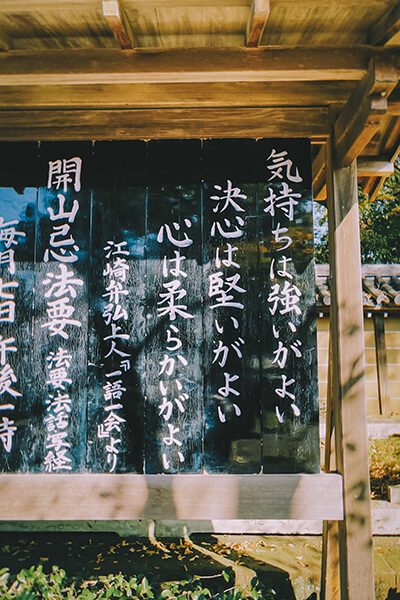 気持ちは強いがよい
決心は堅いがよい
心は柔らかいがよい
江崎弁弘上人『一語一会』より
開山忌法要 法要・法話・写経
毎月七日午後一時